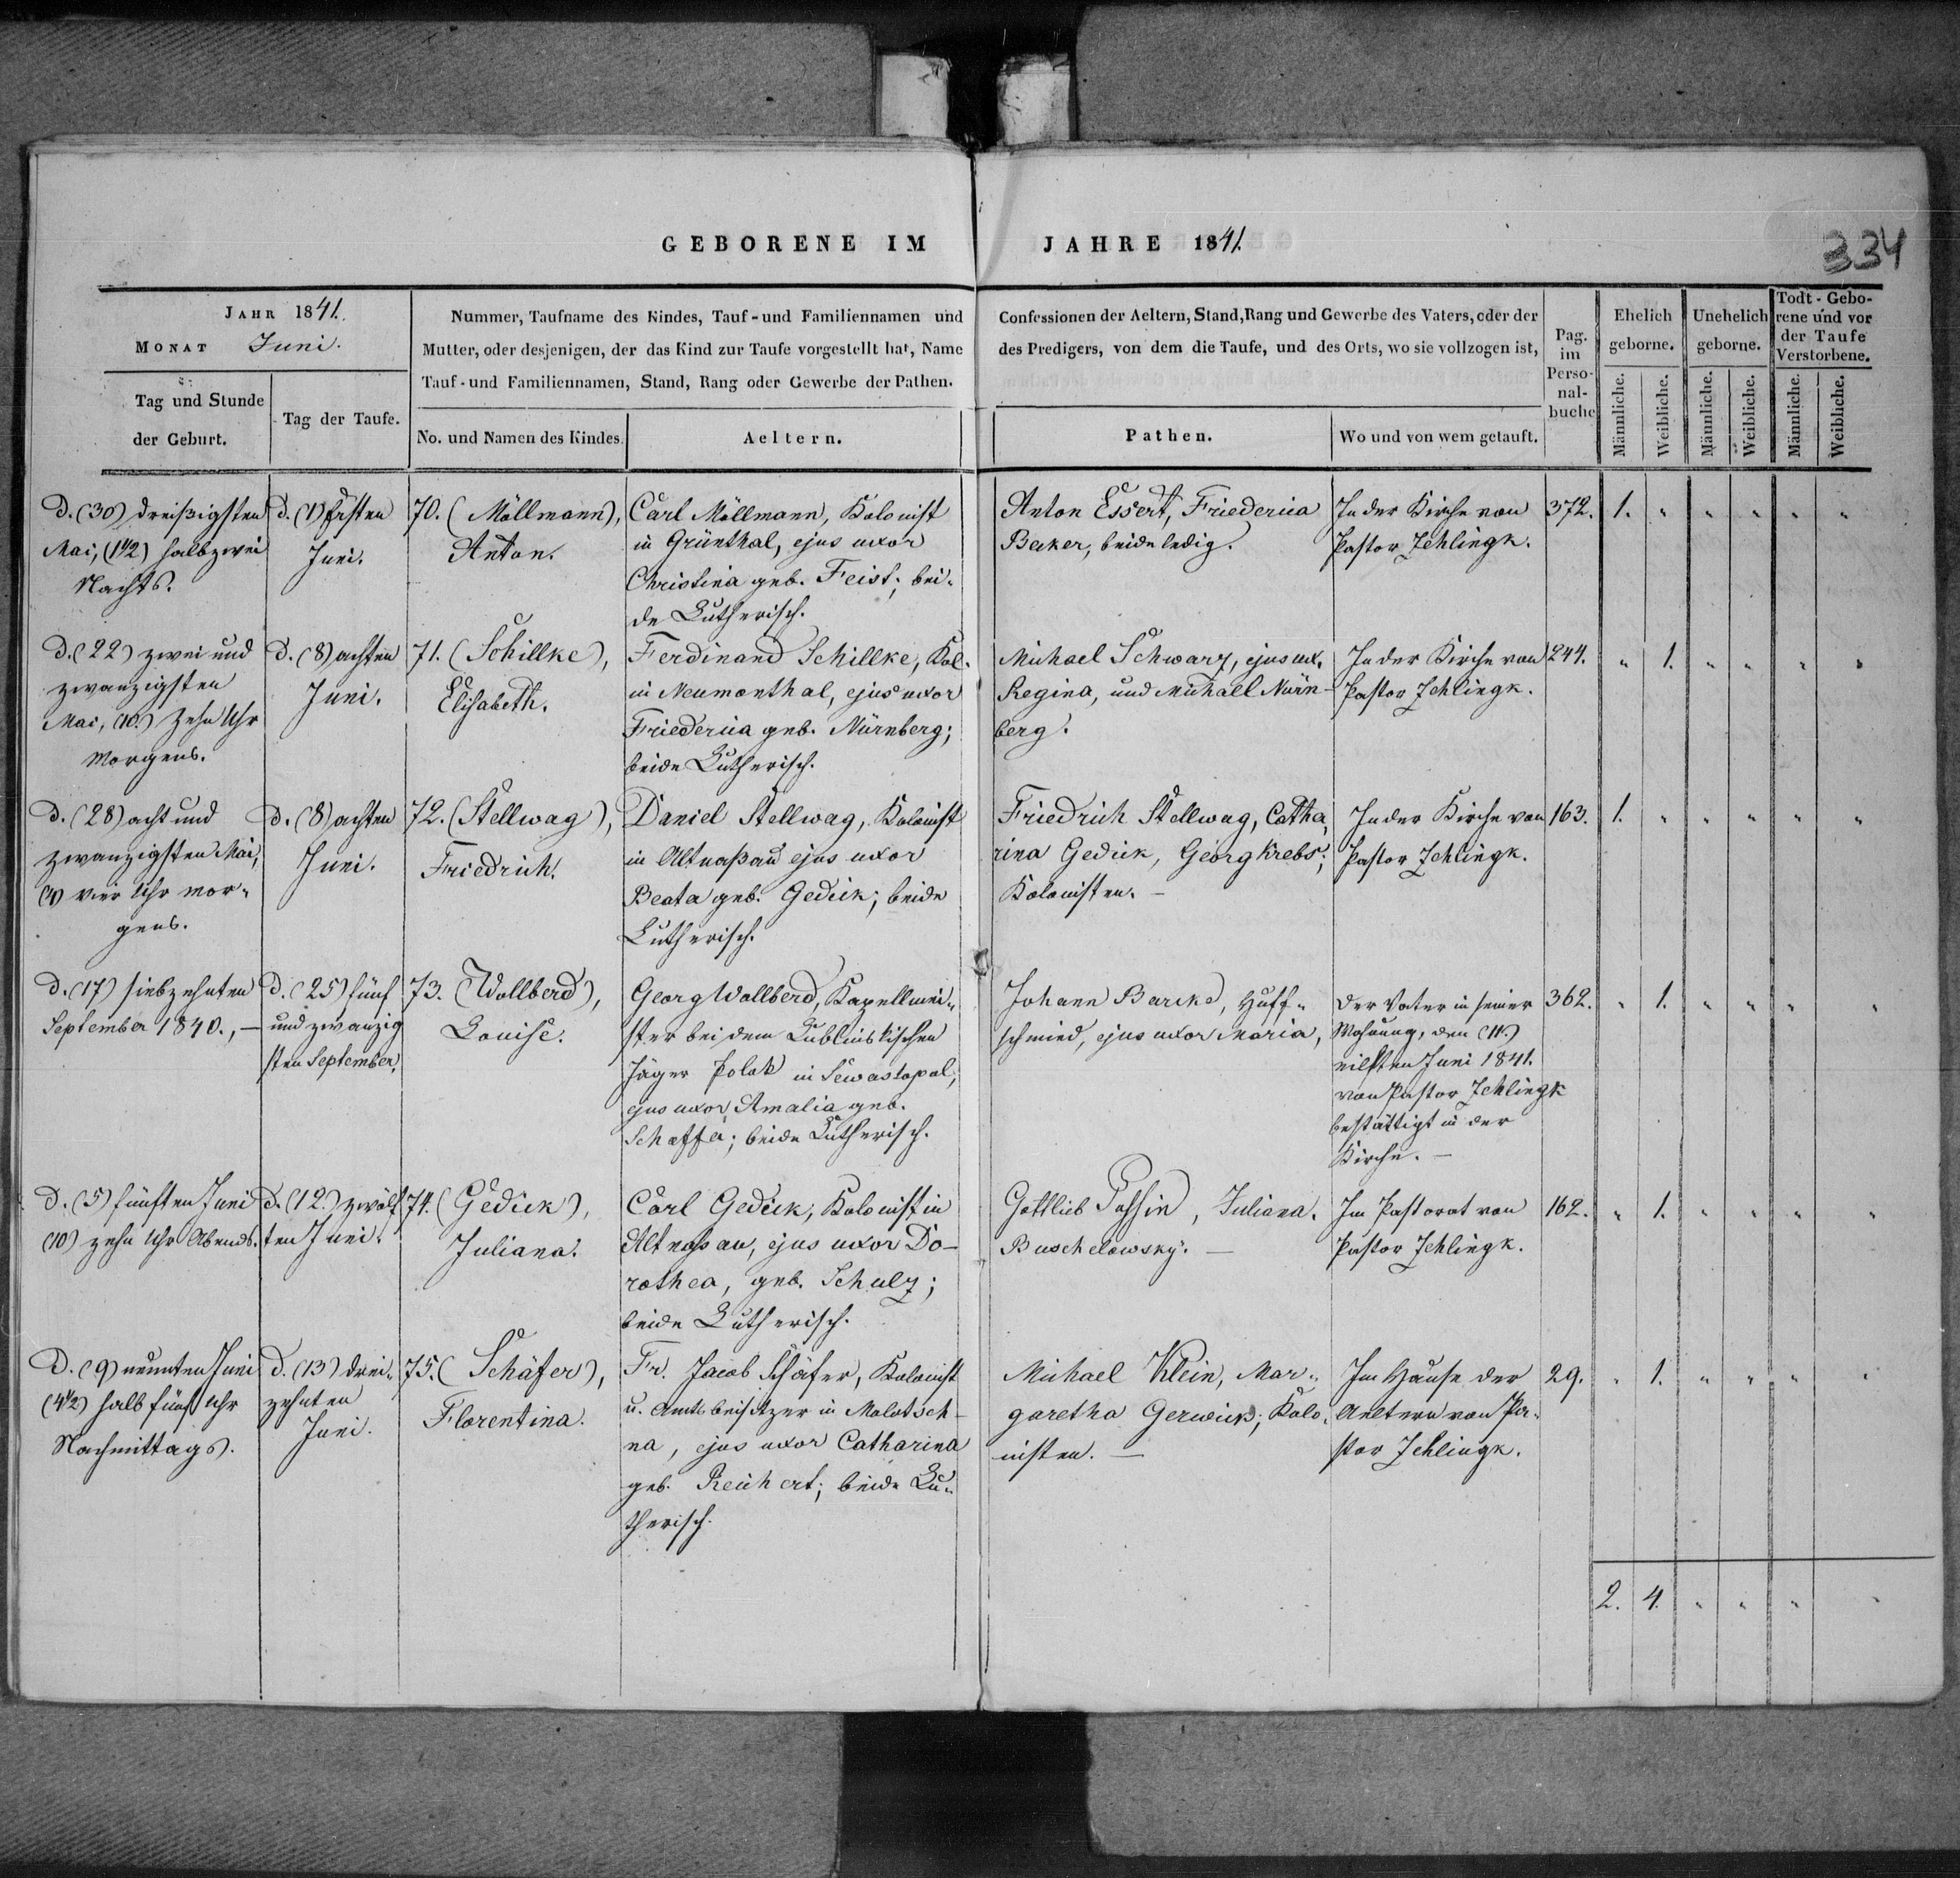 GEBORENE IM JAHRE 1841.
334
JAHR 1841.
MONAT Juni.
Tag und Stunde
der Geburt.
Tag der Taufe.
Nummer, Taufname des Kindes, Tauf- und Familiennamen und
Mutter, oder desjenigen, der das Kind zur Taufe vorgestellt hat, Name
Tauf- und Familiennamen, Stand, Rang oder Gewerbe der Pathen.
No. und Namen des Kindes.
Aeltern.
Confessionen der Aeltern, Stand, Rang und Gewerbe des Vaters, oder der
des Predigers, von dem die Taufe, und des Orts, wo sie vollzogen ist,
Pathen.
Wo und von wem getauft.
Pag.
im
Perso-
nal-
buche
Ehelich
geborne.
Männliche.
Weibliche.
Unehelich
geborne.
Männliche.
Weibliche.
Todt-Gebo-
rene und vor
der Taufe
Verstorbene.
Männliche.
Weibliche.
D. (30) dreißigsten
Mai, (1 1/2) halb zwei
Nachts.
d. (1) Ersten
Juni.
70. (Möllmann),
Anton.
Carl Möllmann, Kolonist
in Grünthal, ejus uxor
Christina geb. Feist; bei-
de Lutherisch.
Anton Essert, Friederica
Becker, beide ledig.
In der Kirche von
Pastor Zehlingk.
372. 1. " " " " "
D. (22) zwei und
zwanzigsten
Mai, (10.) zehn Uhr
Morgens.
d. (8) achten
Juni.
71. (Schillke),
Elisabeth.
Ferdinand Schillke, Kol.
in Neumonthal, ejus uxor
Friederica geb. Nürnberg;
beide Lutherisch.
Michael Schwarz, ejus ux.
Regina, und Michael Nürn-
berg.
In der Kirche von
Pastor Zehlingk.
244. " 1. " " " "
D. (28) acht und
zwanzigsten Mai,
(4) vier Uhr mor-
gens.
d. (8) achten
Juni.
72. (Stellwag),
Friedrich.
Daniel Stellwag, Kolonist
in Altnaßau ejus uxor
Beata geb. Gedick; beide
Lutherisch.
Friedrich Stellwag, Catha-
rina Gedick, Georg Krebs;
Kolonisten. —
In der Kirche von
Pastor Zehlingk.
163. 1. " " " " "
D. (17) siebzehnten
September 1840., —
d. (25) fünf
und zwanzig
sten September,
73. (Wollberd),
Louise.
Georg Wollberd, Kapellmei-
ster bei dem Lublinskischen
Jäger Polck in Sewastopol,
ejus uxor Amalia geb.
Schaffe; beide Lutherisch.
Johann Barcke, Huff-
schmied, ejus uxor Maria,
Der Vater in seiner
Wohnung, den (11.)
eilften Juni 1841.
von Pastor Zehlingk
bestättigt in der
Kirche. —
362. " 1. " " " "
D. (5) fünften Juni
(10) zehn Uhr Abends.
d. (12.) zwölf
ten Juni.
74. (Gedick),
Juliana.
Carl Gedick, Kolonist in
Altnaßau, ejus uxor Do-
rothea, geb. Schulz;
beide Lutherisch.
Gottlieb Passin, Juliana
Buschelowsky. —
Im Pastorat von
Pastor Zehlingk.
162. " 1. " " " "
D. (9) neunten Juni
(4 1/2) halb fünf Uhr
Nachmittags.
d. (13) drei-
zehnten
Juni.
75. (Schäfer),
Florentina.
Fr. Jacob Schäfer, Kolonist
u. Amtsbeisitzer in Molotsch-
na, ejus uxor Catharina
geb. Reichert; beide Lu-
therisch.
Michael Klein, Mar-
garetha Gerwick; Kolo-
nisten. —
Im Hause der
Aeltern von Pa-
stor Zehlingk.
29. " 1. " " " "
2. 4. " " " "